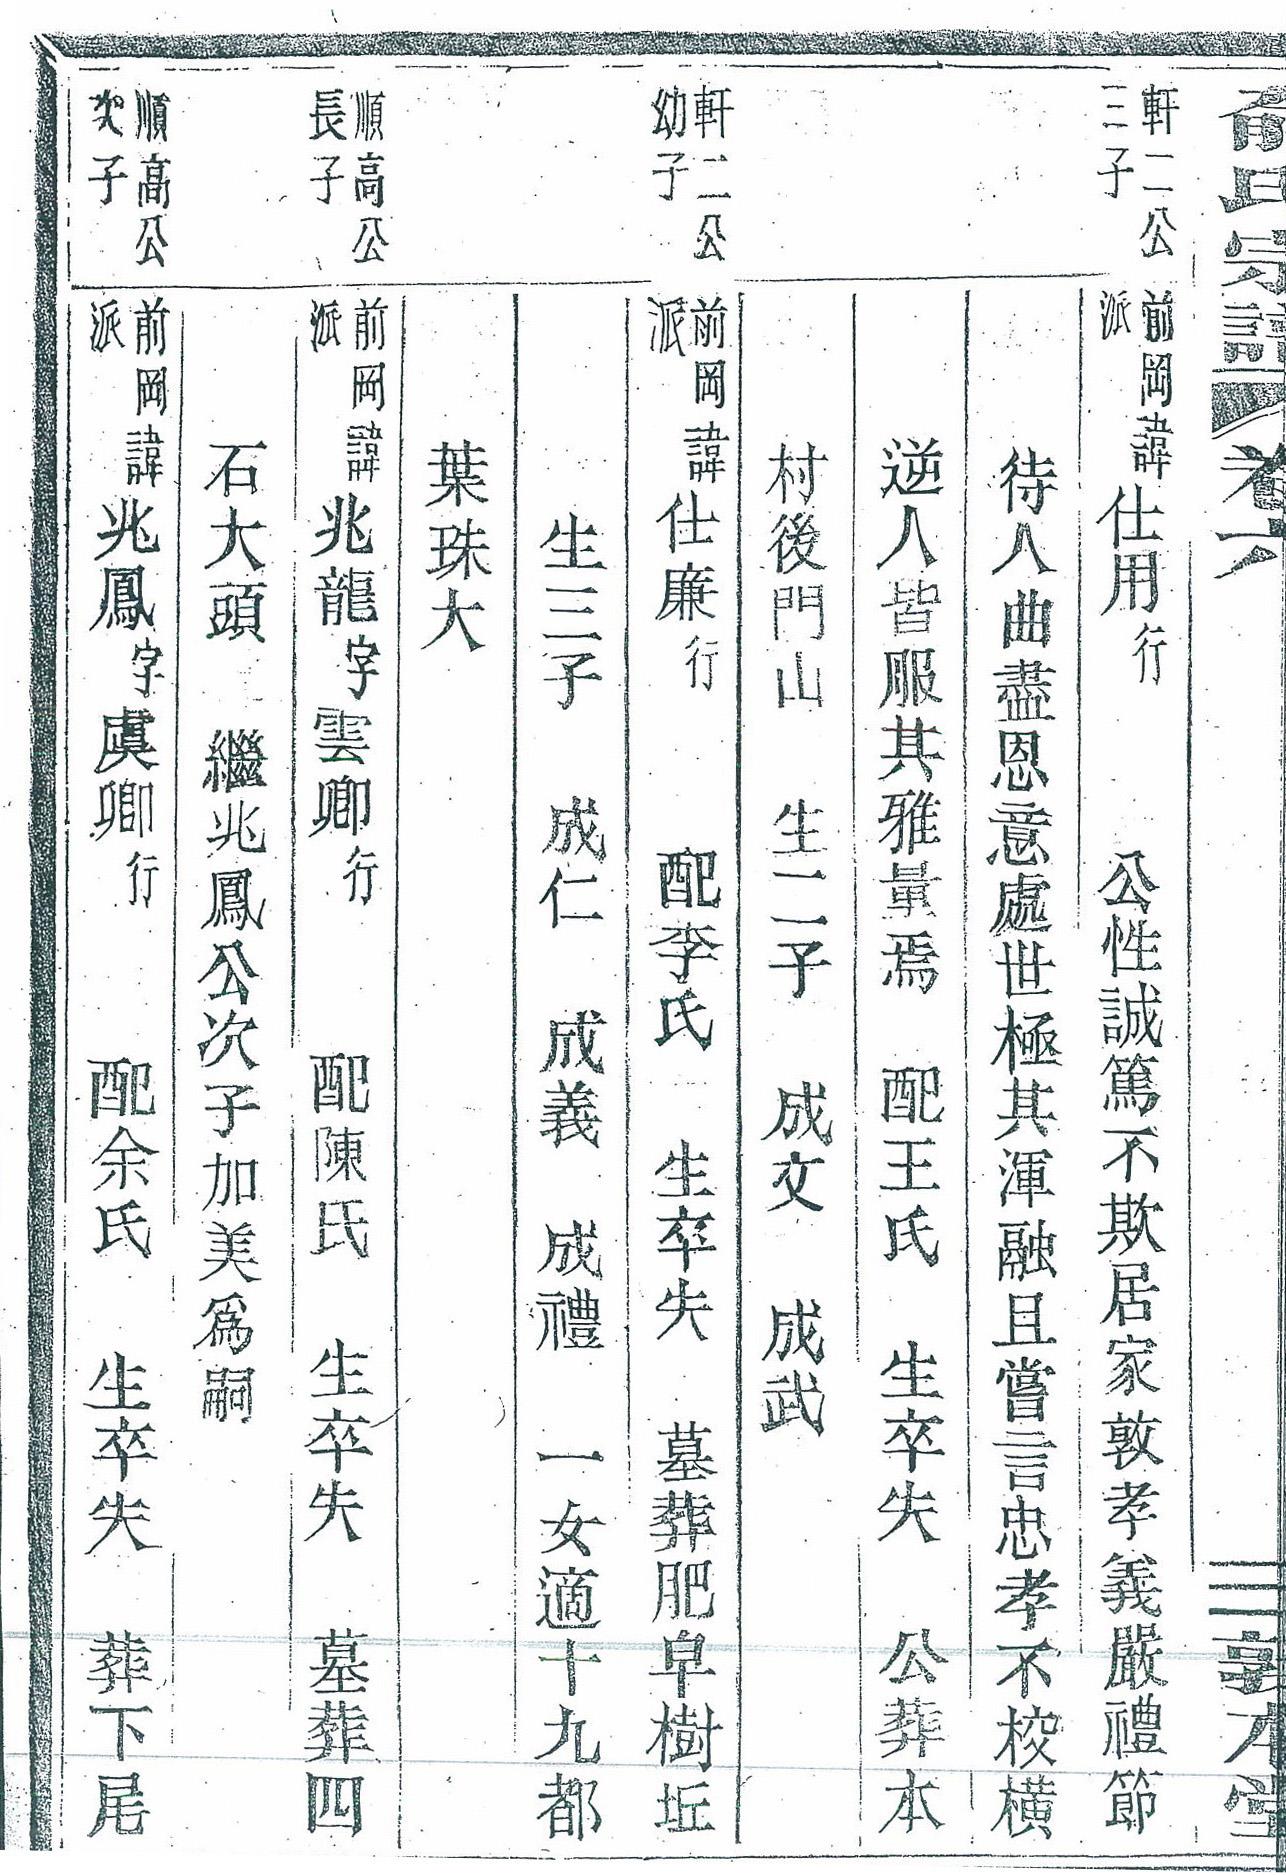 俞氏宗譜 卷六 三 敦本堂
軒二公三子 前岡派 諱仕用行 公性誠篤不欺居家敦孝義嚴禮節
待人曲盡恩意處世極其渾融且嘗言忠孝不校橫
逆人皆服其雅量焉 配王氏 生卒失 公葬本
村後門山 生二子 成文 成武
軒二公幼子 前岡派 諱仕廉行 配李氏 生卒失 墓葬肥皁樹坵
生三子 成仁 成義 成禮 一女適十九都
葉珠大
順高公長子 前岡派 諱兆龍字雲卿行 配陳氏 生卒失 墓葬四
石大頭 繼兆鳳公次子加美爲嗣
順高公次子 前岡派 諱兆鳳字虞卿行 配余氏 生卒失 葬下尾